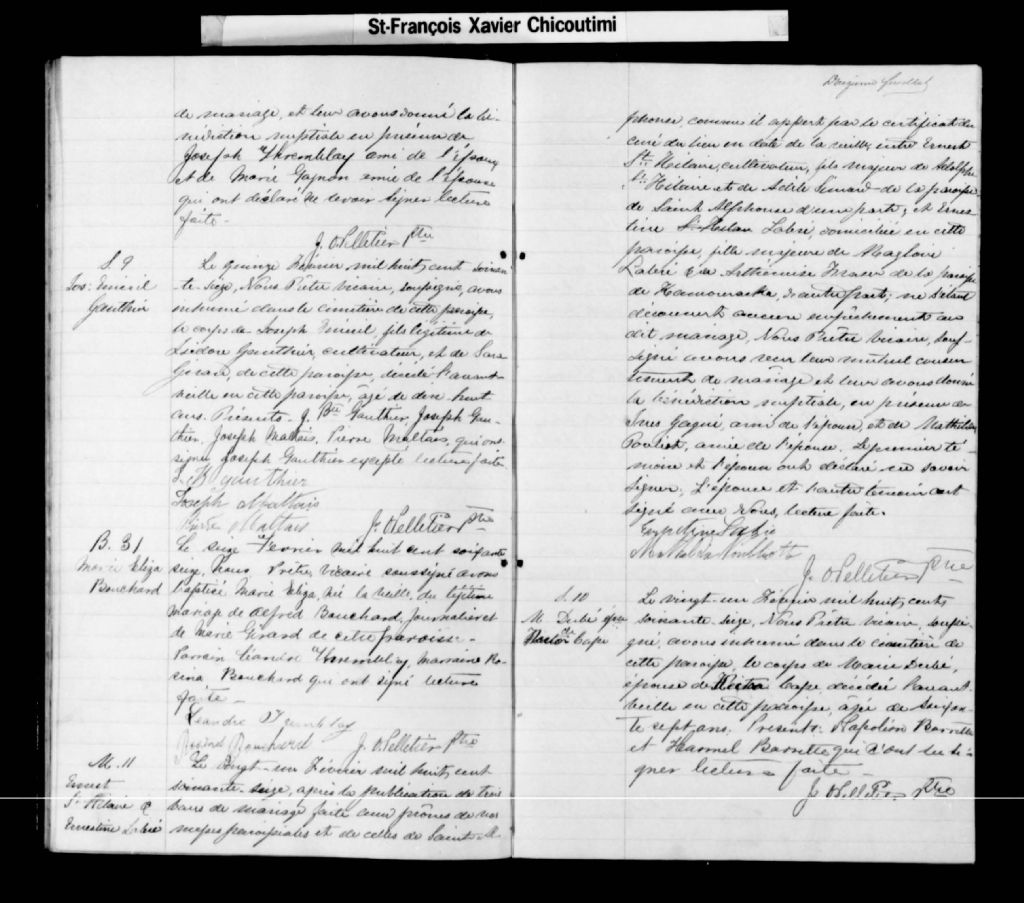 St-François Xavier Chicoutimi
de mariage, et leur avons donné la bé-
nédiction nuptiale en présence de
Joseph Thremblay ami de l'Époux
et de Marie Gagnon amie de l'Épouse
qui ont déclaré ne savoir signer lecture
faite.
J. O Pelletier Ptre
S. 9
Jos. Émeril
Gauthier
Le quinze Février mil huit cent soixan
te seize, Nous Prêtre vicaire, soussigné, avons
inhumé dans le cimetière de cette paroisse,
le corps de Joseph Émeril fils légitime de
Gauthier, cultivateur, et de Sara
Girard, de cette paroisse, décédé l'avant-
veille en cette paroisse, âgé de dix huit
ans. Présents. J. Bte Gauthier, Joseph Gau-
thier, Joseph Maltais, Pierre Maltais, qui ont
signé Joseph Gauthier excepté lecture faite.
J. B gauthier
Joseph Malthais
Pierre Maltais J. O Pelletier Ptre
B. 31
Marie Eliza
Bouchard
Le seize Février mil huit cent soixante
seize, nous Prêtre, vicaire soussigné avons
baptisé, Marie Eliza, née la veille, du légitime
mariage de Alfred Bouchard, Journalier et
de Marie Girard de cette paroisse.
Parrain Léandre Thremblay, marraine Ro-
sina Bouchard qui ont signé lecture
faite
Léandre Tremblay
Bouchard J. O Pelletier Ptre
M. 11
Ernest
St Hilaire &
Ernestine Labrie
Le vingt-un Février mil huit cent
soixante-seize, après la publication de trois
bans de mariage faite aux prônes de nos
messes paroissiales et de celles de Saint-Al
phonse, comme il appert par le certificat du
curé du lieu en date de la veille, entre Ernest
St. Hilaire, cultivateur, fils majeur de Adolphe
St. Hilaire et de Adèle Simard de la paroisse
de Saint Alphonse d'une part; et Ernes
tine Labrie, domiciliée en cette
paroisse, fille majeure de Magloire
Labrie & de Arthémise de la paroisse
de Kamouraska, d'autre part; ne s'étant
découvert aucun empêchement au
dit mariage, Nous Prêtre Vicaire, sous-
signé avons reçu leur mutuel consen
tement de mariage et leur avons donné
la bénédiction nuptiale, en présence de
Yves Gagné, ami de l'époux, et de Mathilda
Pouliot, amie de l'épouse. Le premier té-
moin et l'époux ont déclaré ne savoir
signer. L'épouse et l'autre témoin ont
signé avec Nous, lecture faite.
Ernestine Labrie
Mathilda
J. O Pelletier Ptre
S. 10
M. Dubé
Cape
Le vingt-un Février mil huit cent
soixante seize, Nous Prêtre vicaire, soussi-
gné, avons inhumé dans le cimetière de
cette paroisse, le corps de Marie Dubé,
épouse de Cape, décédée l'avant
veille en cette paroisse, âgée de soixan-
te sept ans. Présents: Napoléon Barrette
et Barrette qui n'ont su si-
gner lecture faite
J. O Pelletier Ptre